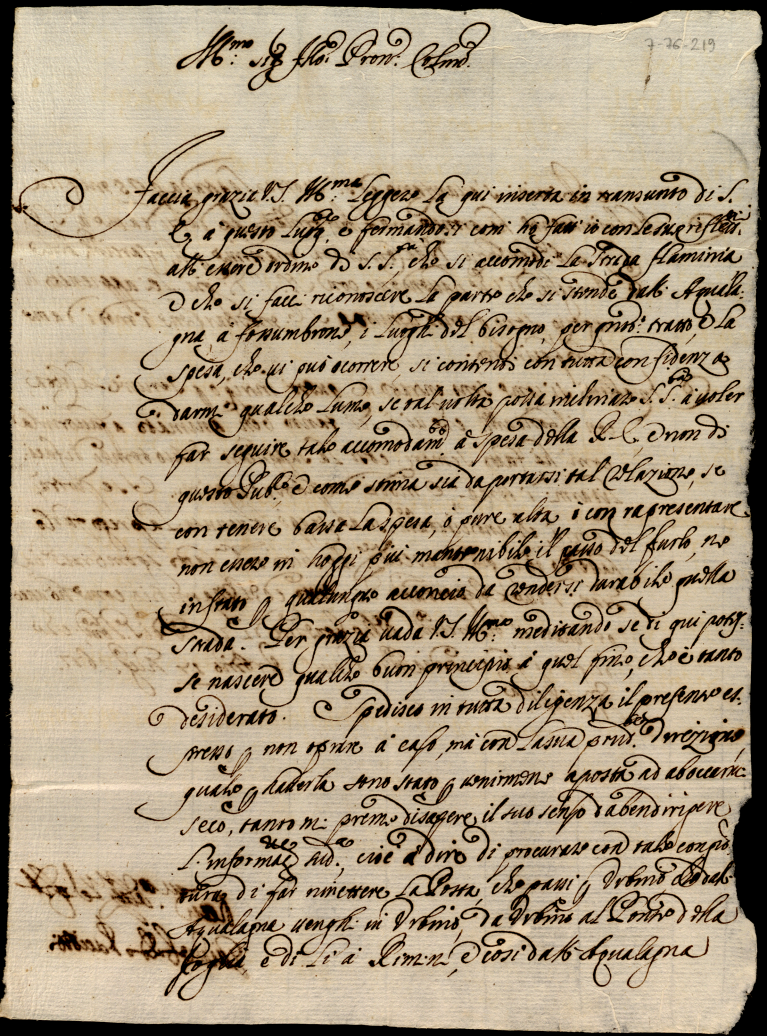 7-76-219
Ill.mo Sig.r Pron. Col.mo
Faccia grazia V.S. Ill.ma leggere la qui inserta in transunto di S.
E. a questo Luog. e fermandosi così ha fatt' io con le sue
esser ordine di S. S.tà, che si accomodi la strada flaminia
e che si facci riconoscere la parte che si stende dall' Aquala-
gna a fossumbrone, i luoghi del bisogno, per tratto, e la
spesa, che vi può ocorrere si contenti con tutta confidenza
darmi qualche lume, se tal volta possa inclinare S. S.tà a voler
far seguire tale accomodam.to a spesa della R. C., e non di
questo Pub.co e come stima sia da portarsi tal relazione, se
con tenere bassa la spesa, o pure alta, i con rapresentare
non essere in hoggi più mantenibile il passo del furlo, ne
in stato qualunque acconcio da rendersi durabile quella
strada. Per grazia vada V.S. Ill.ma meditando se di qui potes-
se nascere qualche buon principio a quel fine, che è tanto
desiderato. Spedisco in tutta diligenza il presente es-
presso p non oprare a caso, mà con la sua prud.ma direzione,
quale p haverla sono stato p venirmene aposta ad aboccarmi
seco, tanto mi preme di sapere il suo senso
L'informaz.ne sud.a, cioè a dire di procurare con tale congion-
tura di far rimettere la Posta, che passi p Urbino, dall'
Aqualagna venghi in Urbino, da Urbino al Ponte della
foglia, e di lì a Rimini, e così dall' Aqualagna